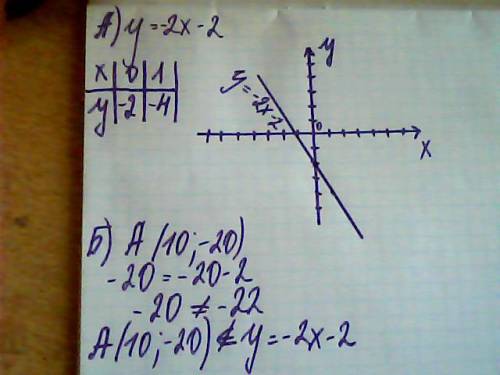 А) y = -2x - 2
x | 0 | 1 |
y | -2 | -4 |
y
y = -2x - 2
0
x
Б) А (10; -20)
-20 = -20 - 2
-20 ≠ -22
А (10; -20) ∉ y = -2x - 2